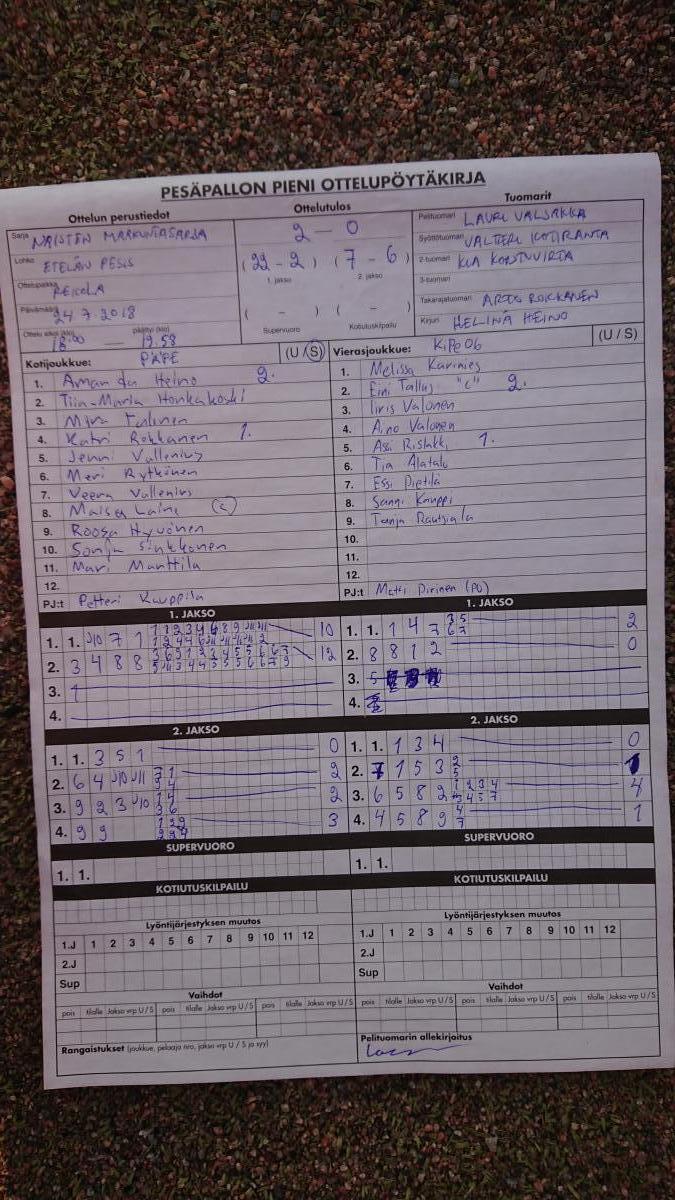 PESÄPALLON PIENI OTTELUPÖYTÄKIRJA
Ottelun perustiedot
Sarja NAISTEN MAAKUNTASARJA
Lohko ETELÄN PESIS
Ottelupaikka REKOLA
Päivämäärä 24.7.2018
Ottelu alkoi (klo) 18:00 päättyi (klo) 19.58
Ottelutulos
2 - 0
(22 - 2) (7 - 6)
1. jakso 2. jakso
( - ) ( - )
Supervuoro Kotiutuskilpailu
Tuomarit
Pelituomari LAURI VALJAKKA
Syöttötuomari VALTTERI KOTIRANTA
2-tuomari KIA KONTUVIRTA
3-tuomari
Takarajatuomari ARTO ROKKANEN
Kirjuri HELINÄ HEINO
Kotijoukkue: PÄPE (U / S)
1. Amanda Heino 2.
2. Tiia-Maria Honkakoski
3. Mira
4. Katri Rokkanen 1.
5. Jenni Vallenius
6. Meri Rytkönen
7. Veera Vallenius
8. Maisa Laine (c)
9. Roosa Hyvönen
10. Sonja Sinkkonen
11. Mari Manttila
12.
PJ:t Petteri Kauppila
Vierasjoukkue: KiPe06 (U / S)
1. Melissa Karinies
2. Eini Tallus "c" 2.
3. Iiris Valonen
4. Aino Valonen
5. Asa 1.
6. Tia Alatalo
7. Essi Pietilä
8. Sanni Kauppi
9. Tanja Rautsiala
10.
11.
12.
PJ:t Matti Pirinen (PJ)
1. JAKSO
1. 1. J10 7 1 10
2. 3 4 8 8 12
3. 1
4.
1. JAKSO
1. 1. 1 4 7 2
2. 8 8 1 2 0
3. 5
4.
2. JAKSO
1. 1. 3 5 1 0
2. 6 4 J10 J11 2
3. 9 2 3 J10 2
4. 9 9 3
2. JAKSO
1. 1. 1 3 4 0
2. 7 1 5 3 1
3. 6 5 8 2 4
4. 4 5 8 9 1
SUPERVUORO
1. 1.
SUPERVUORO
1. 1.
KOTIUTUSKILPAILU
KOTIUTUSKILPAILU
Lyöntijärjestyksen muutos
1.J 1 2 3 4 5 6 7 8 9 10 11 12
2.J
Sup
Lyöntijärjestyksen muutos
1.J 1 2 3 4 5 6 7 8 9 10 11 12
2.J
Sup
Vaihdot
pois tilalle Jakso vrp U / S pois tilalle Jakso vrp U / S pois tilalle Jakso vrp U / S
Vaihdot
pois tilalle Jakso vrp U / S pois tilalle Jakso vrp U / S pois tilalle Jakso vrp U / S
Rangaistukset (joukkue, pelaaja nro, jakso vrp U / S ja syy)
Pelituomarin allekirjoitus